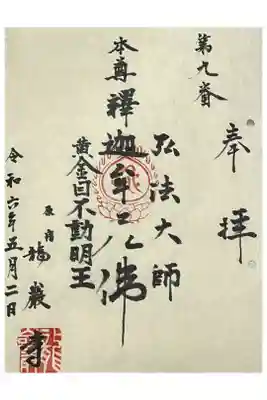 奉拝
第九番
弘法大師
本尊釋迦牟尼佛
黄金目不動明王
原宿
福巌寺
令和六年五月二日